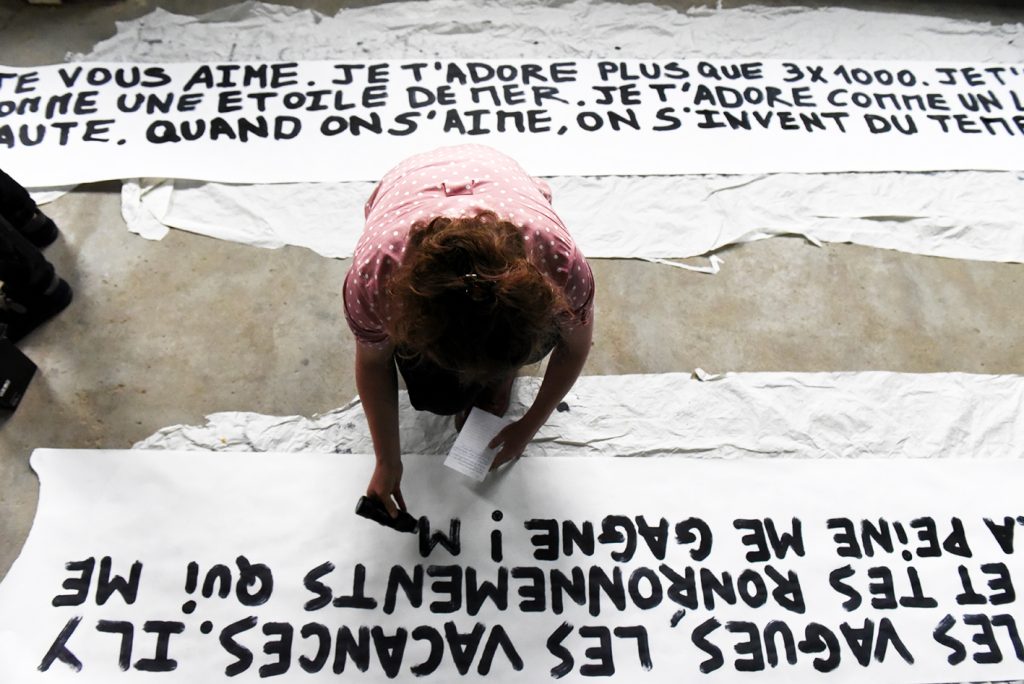 JE VOUS AIME. JE T'ADORE PLUS QUE 3X1000. JE T'
OMME UNE ETOILE DE MER. JE T'ADORE COMME UN L
AUTE. QUAND ON S'AIME, ON S'INVENT DU TEMP
LES VAGUES, LES VACANCES. IL Y
ET TES RONRONNEMENTS QUi ME
A PEiNE ME GAGNE ! M